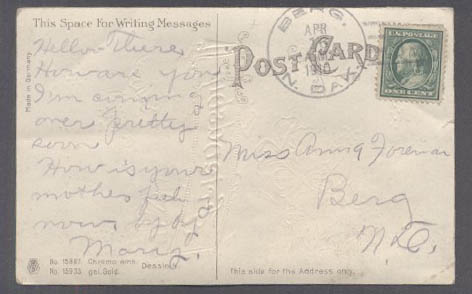 This Space For Writing Messages
Hello There
How are you
I'm coming
over pretty
soon
How is your
mother feel
now. By by
Mary.
Made in Germany
No. 15887. Chromo emb.
No. 15933. gel. Gold. Dessin
BERG.
APR
1910
N. DAK.
POST CARD
U.S. POSTAGE
ONE CENT
Miss Anna Foreman
Berg
N.D.
This side for the Address only.